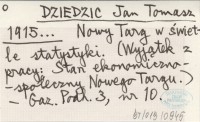 DZIEDZIC Jan Tomasz
1915... Nowy Targ w świet-
le statystyki. (Wyjątek z
pracy: Stan ekonomiczno-
-społeczny Nowego Targu.)
- Gaz. Podh. 3, nr 10.